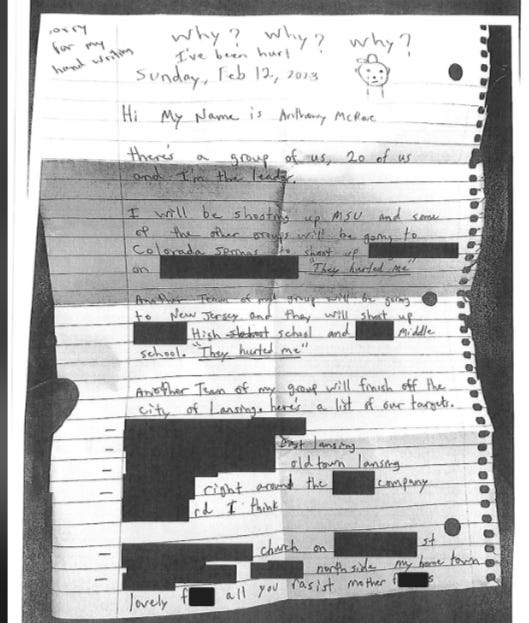 sorry
for my
hand writing
Why? Why? Why?
I've been hurt
Sunday, Feb 12, 2023
Hi My Name is Anthony McRae
there's a group of us, 20 of us
and I'm the leader.
I will be shooting up MSU and some
of the other groups will be going to
Colorada Springs to shoot up
on "They hurted me"
Another Team of my group will be going
to New Jersey and they will shoot up
High school and Middle
school. "They hurted me"
Another Team of my group will finish off the
city of Lansing. here's a list of our targets.
East lansing
old town lansing
right around the company
rd I think
church on st
north side my home town
lovely f all you rasist mother f s